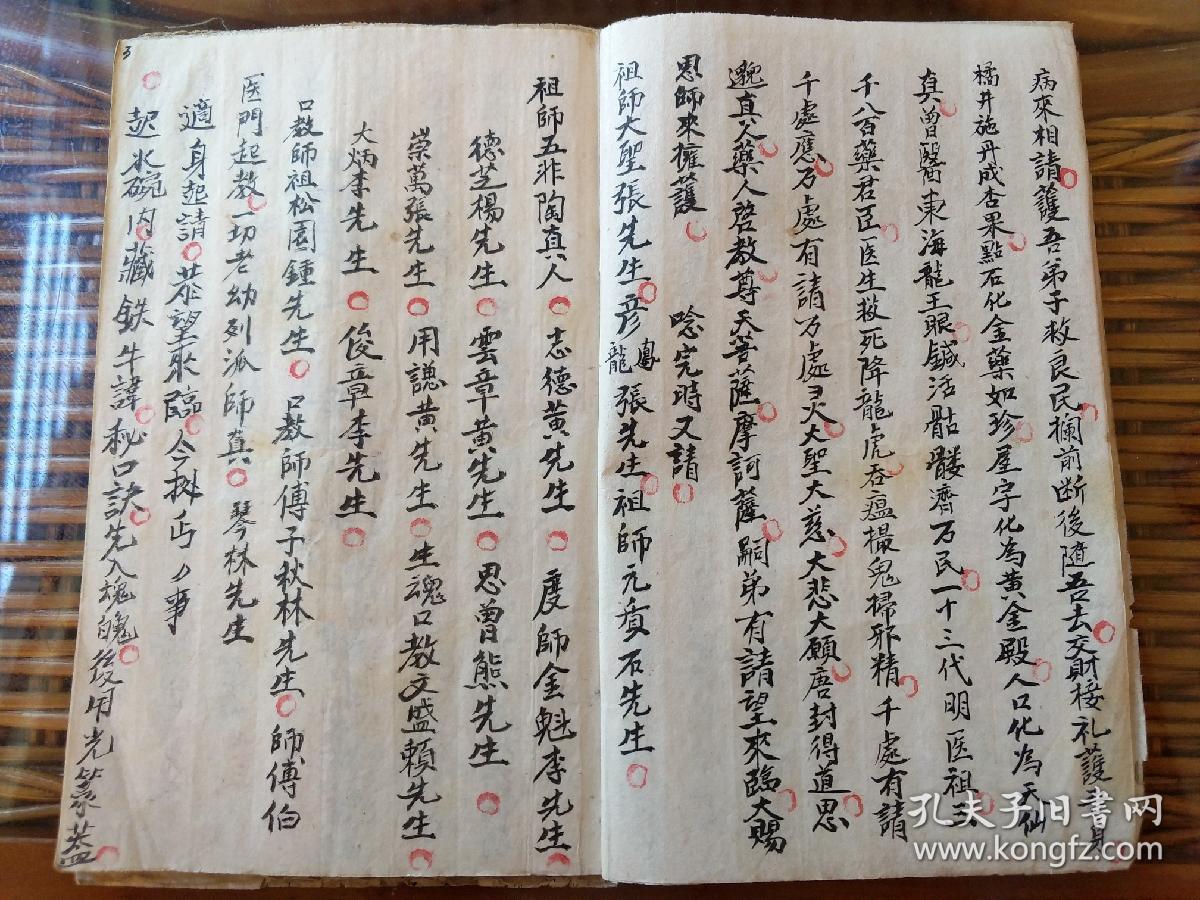 病來相請護吾弟子救良民攔前断後隨吾去交財接礼護吾身
橘井施丹成杏果點石化金藥如珍屋字化為黃金殿人口化為天仙
真曾醫東海龍王眼鍼活骷髅濟万民一十三代明医祖三
千八百藥君臣医生救死降龍虎吞瘟撮鬼掃邪精千處有請
千處應万處有請万處灵大聖大慈大悲大願唐封得道思
邈真人藥人啓教尊天菩薩摩訶薩嗣弟有請望來臨大賜
恩師來擁護 唸完時又請
祖師大聖張先生彦鳳龍張先生祖師元貞石先生
祖師五非陶真人 志德黃先生 度師金魁李先生
德芝楊先生 雲章黃先生 思曾熊先生
崇萬張先生 用謥黃先生 生魂口教文盛賴先生
大炳李先生 俊章李先生
口教師祖松園鍾先生 口教師傅子秋林先生 師傅伯
医門起教一切老幼列派師真 琴林先生
適身起請恭望來臨今 事
起水碗内藏鉄牛諱秘口訣先入魂魄後用光篆蓋
3
孔夫子旧書网
www.kongfz.com